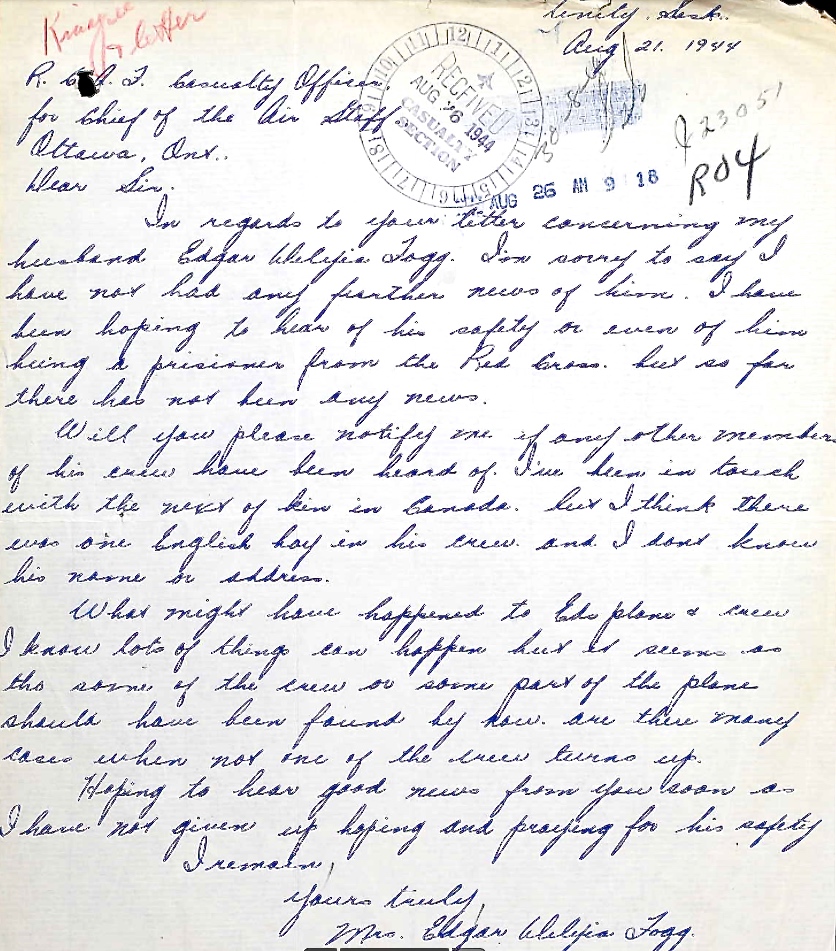 Unity, Sask..
Aug 21. 1944
letter
R. C. A. F. Casualty Officer,
for Chief of the Air Staff
Ottawa, Ont..
Dear Sir.
RECEIVED
AUG 26 1944
CASUALTY
SECTION
AUG 26 AM 9 18
J23051
R04
In regards to your letter concerning my
husband Edgar Welejia Fogg. I'm sorry to say I
have not had any further news of him. I have
been hoping to hear of his safety or even of him
being a prisioner from the Red Cross. but so far
there has not been any news.
Will you please notify me if any other members
of his crew have been heard of. I've been in touch
with the next of kin in Canada. but I think there
was one English boy in his crew and I dont know
his name or address.
What might have happened to Eds plane & crew
I know lots of things can happen but it seems as
tho some of the crew or some part of the plane
should have been found by now. are there many
cases when not one of the crew turns up.
Hoping to hear good news from you soon as
I have not given up hoping and praying for his safety
I remain,
Yours truly,
Mrs. Edgar Welejia Fogg.